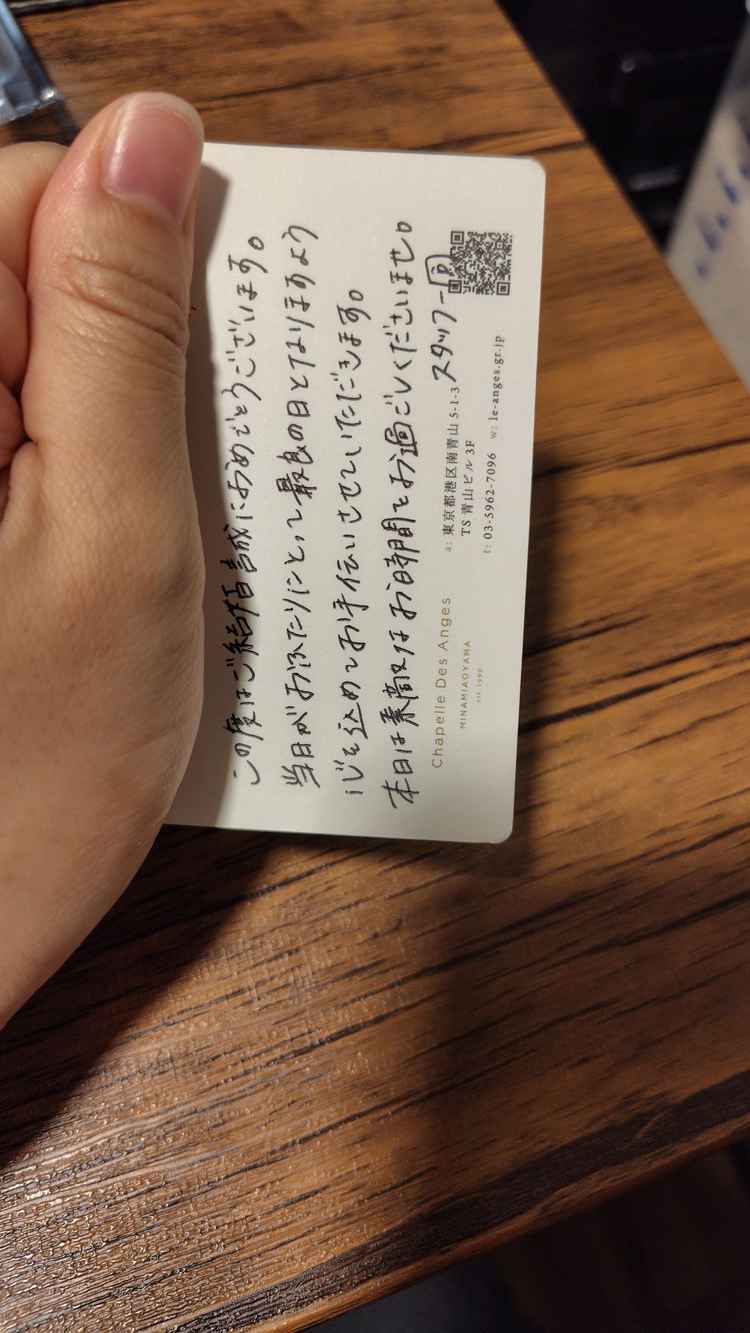 この度はご結婚誠におめでとうございます。
当日がおふたりにとって最良の日となりますよう
心を込めてお手伝いさせていただきます。
本日は素敵なお時間をお過ごしくださいませ。
スタッフ一同
Chapelle Des Anges
MINAMIAOYAMA
EST. 1990
a: 東京都港区南青山 5-1-3
TS 青山ビル 3F
t: 03-5962-7096 w: le-anges.gr.jp